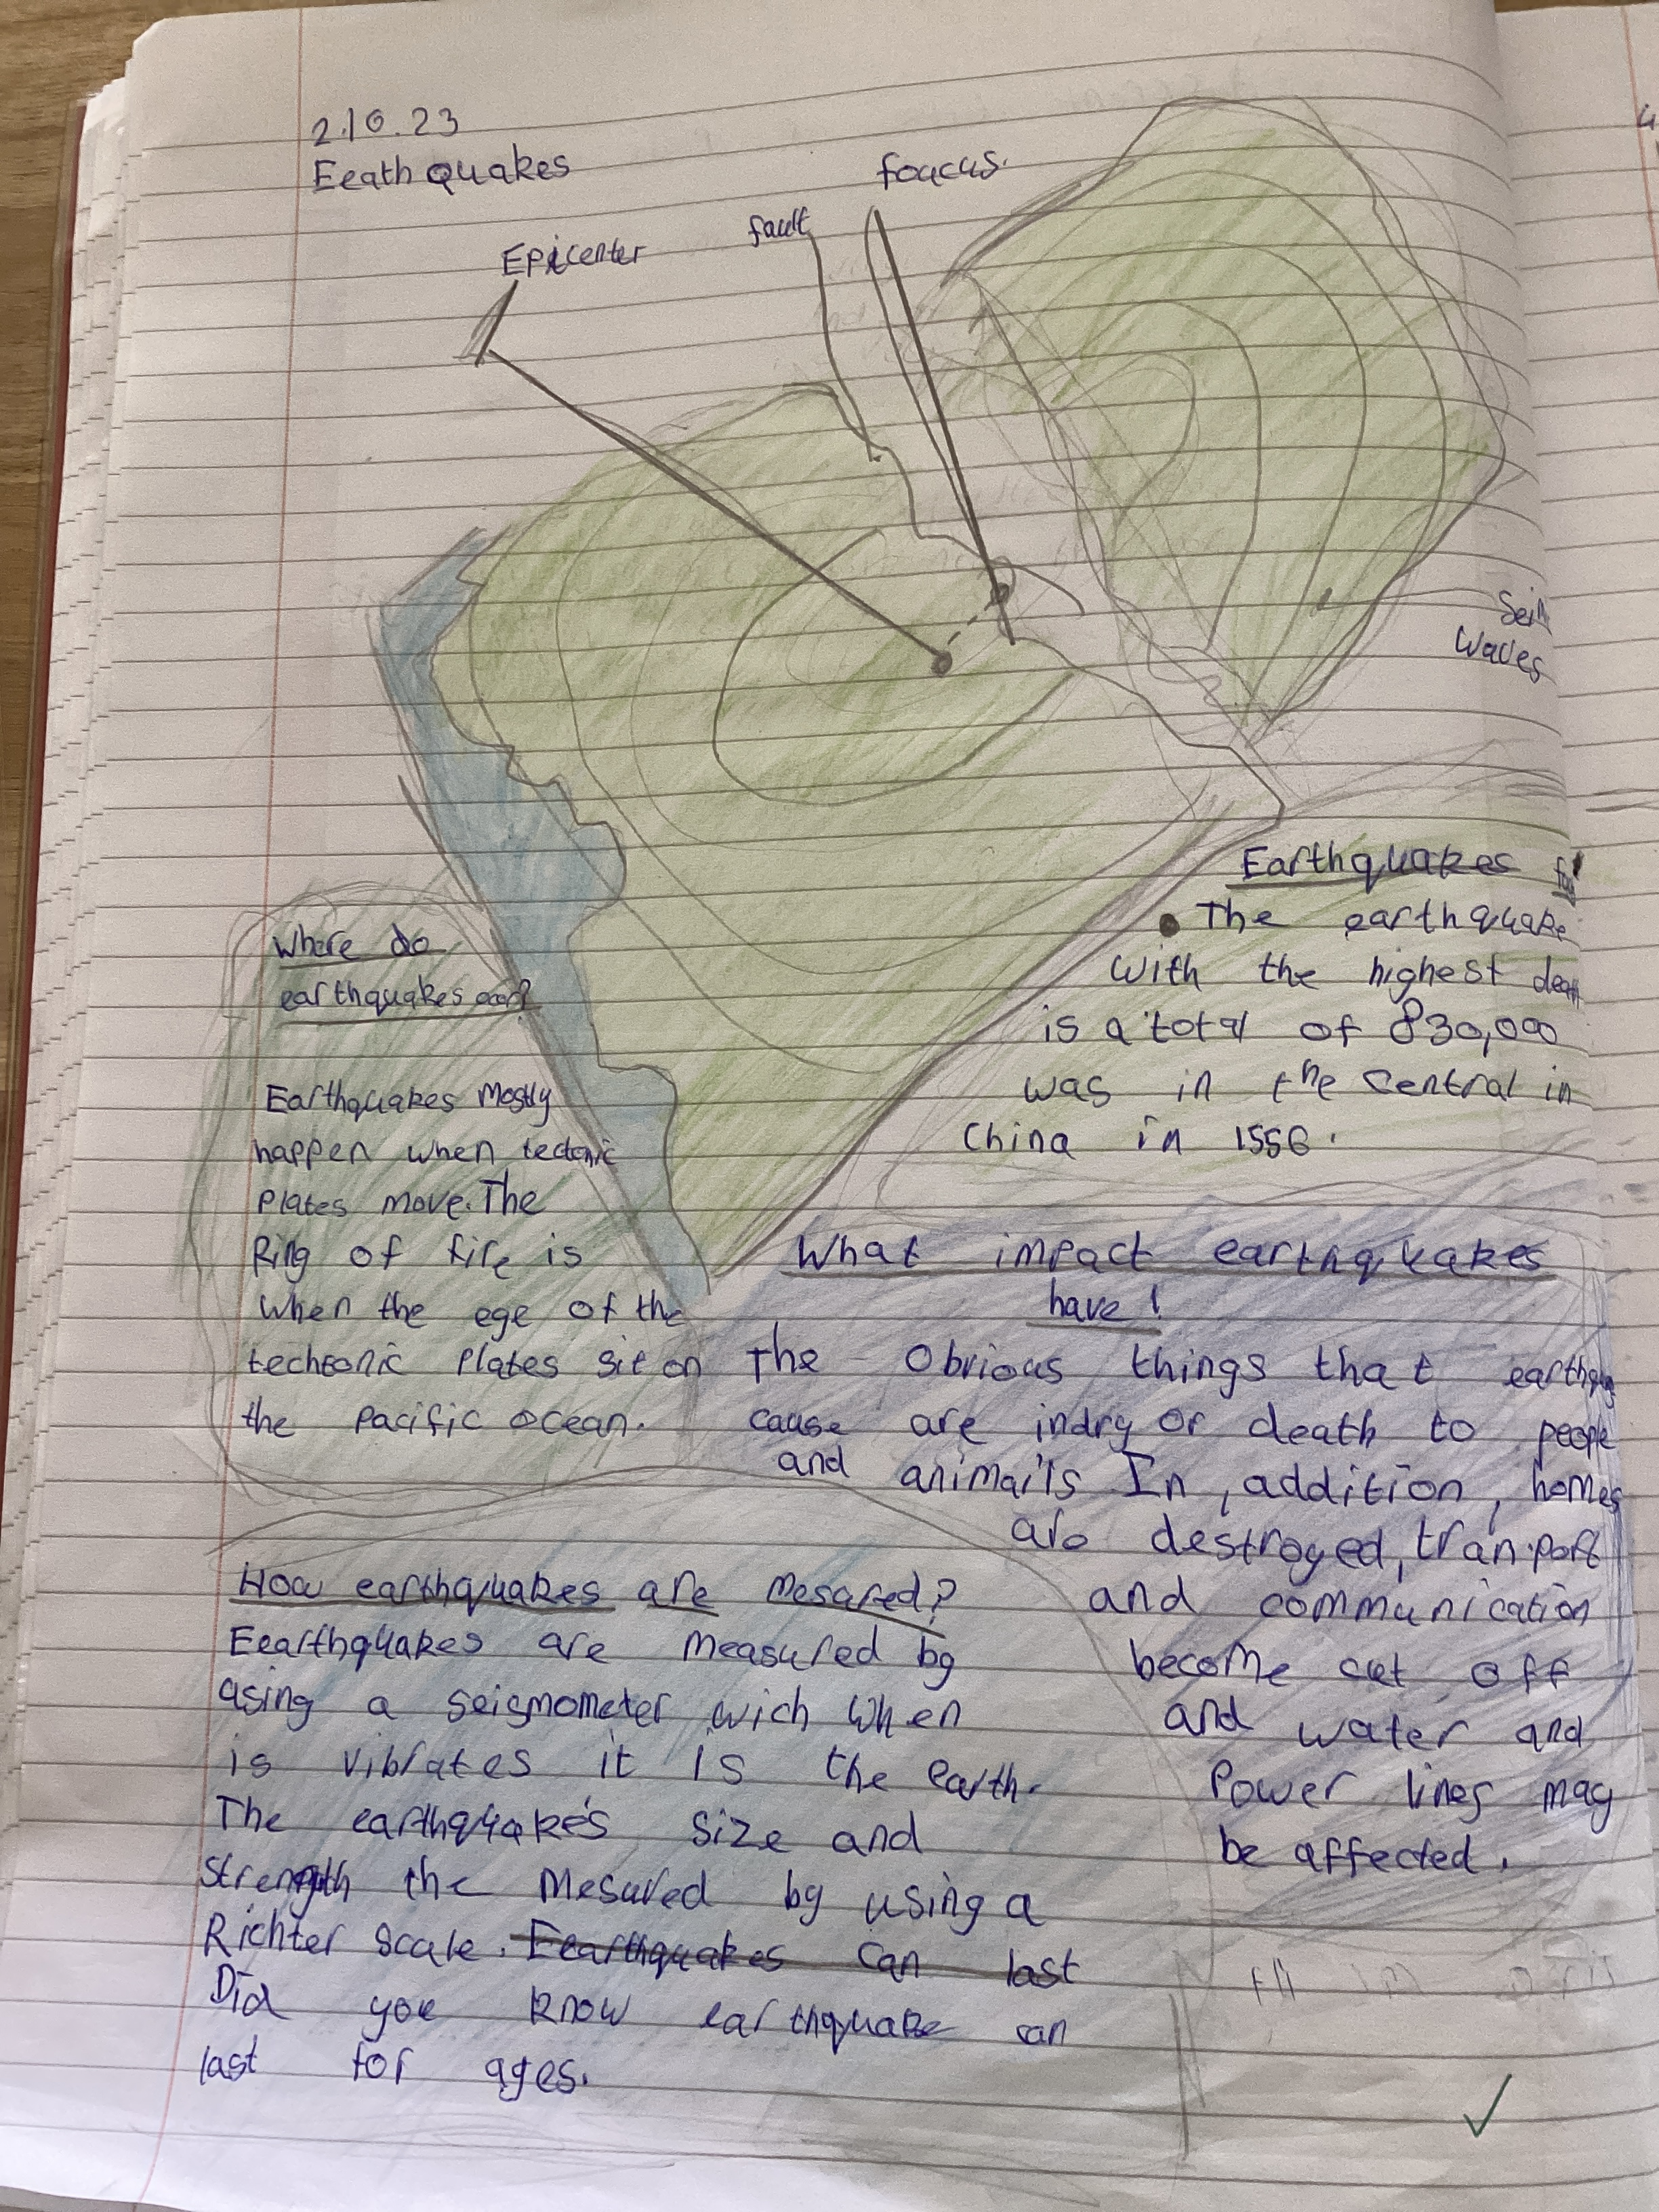 2.10.23
Eeath quakes
foucus.
fault
Epicenter
Waves
Earthquakes
The earthquake
with the highest
is a total of 830,000
was in the central in
China in 1556.
Where do
earthquakes
Earthquakes mostly
happen when tectonic
plates move. The
Ring of fire is
when the ege of the
techtonic plates sit on
the pacific ocean.
What impact earthquakes
have!
The obvious things that
cause are or death to people
and animails In, addition, homes
are destroyed, tranport
and communication
become cut off
and water and
Power lines may
be affected.
How earthquakes are mesared?
Eearthquakes are measured by
using a seigmometer wich when
is vibrates it is the earth.
The earthquakes size and
strength the mesured by using a
Richter scale. Eearthquakes can last
Did you know earthquake can
last for ages.